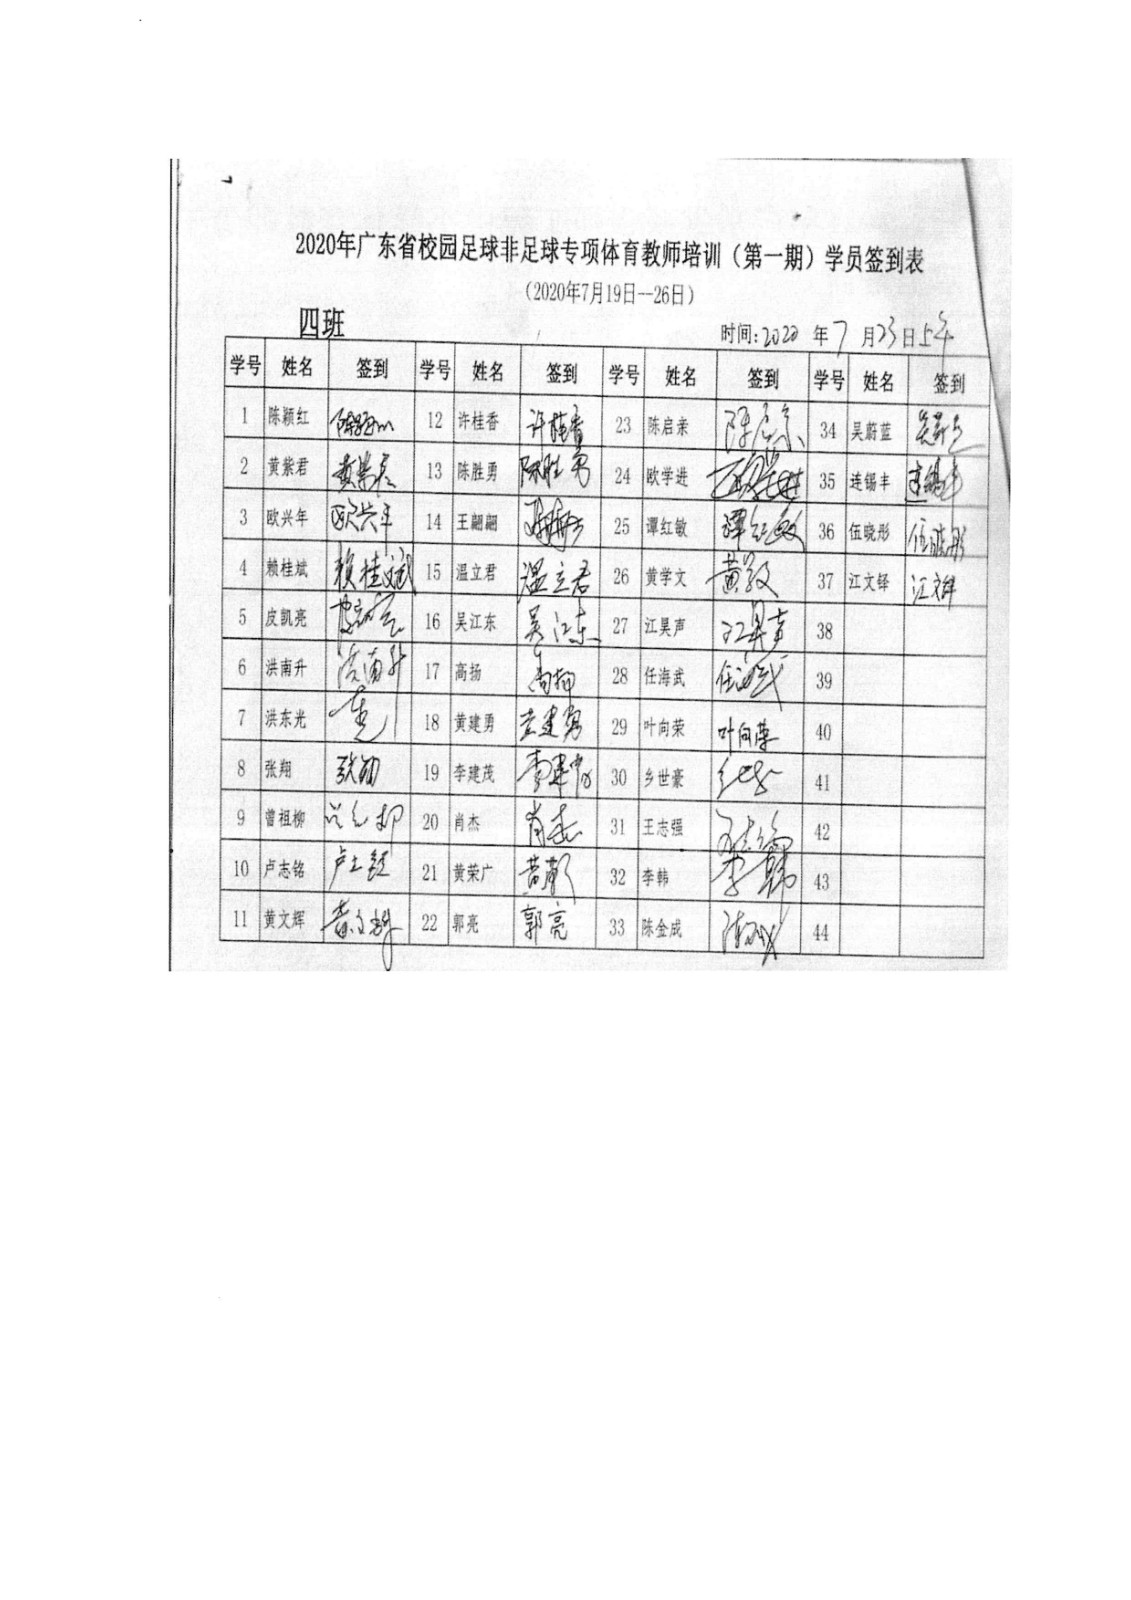 2020年广东省校园足球非足球专项体育教师培训（第一期）学员签到表
（2020年7月19日--26日）
四班
时间:2020 年 7 月 23 日上午
学号 姓名 签到 学号 姓名 签到 学号 姓名 签到 学号 姓名 签到
1 陈颖红 12 许桂香 许桂香 23 陈启亲 34 吴蔚蓝
2 黄紫君 黄紫君 13 陈胜勇 陈胜勇 24 欧学进 欧学进 35 连锡丰 连锡丰
3 欧兴年 欧兴年 14 王翩翩 25 谭红敏 谭红敏 36 伍晓彤 伍晓彤
4 赖桂斌 赖桂斌 15 温立君 温立君 26 黄学文 37 江文铎
5 皮凯亮 16 吴江东 吴江东 27 江昊声 江昊声 38
6 洪南升 洪南升 17 高扬 高扬 28 任海武 任海武 39
7 洪东光 18 黄建勇 黄建勇 29 叶向荣 叶向荣 40
8 张翔 19 李建茂 李建茂 30 乡世豪 41
9 曾祖柳 20 肖杰 肖杰 31 王志强 42
10 卢志铭 21 黄荣广 32 李韩 李韩 43
11 黄文辉 黄文辉 22 郭亮 郭亮 33 陈金成 44